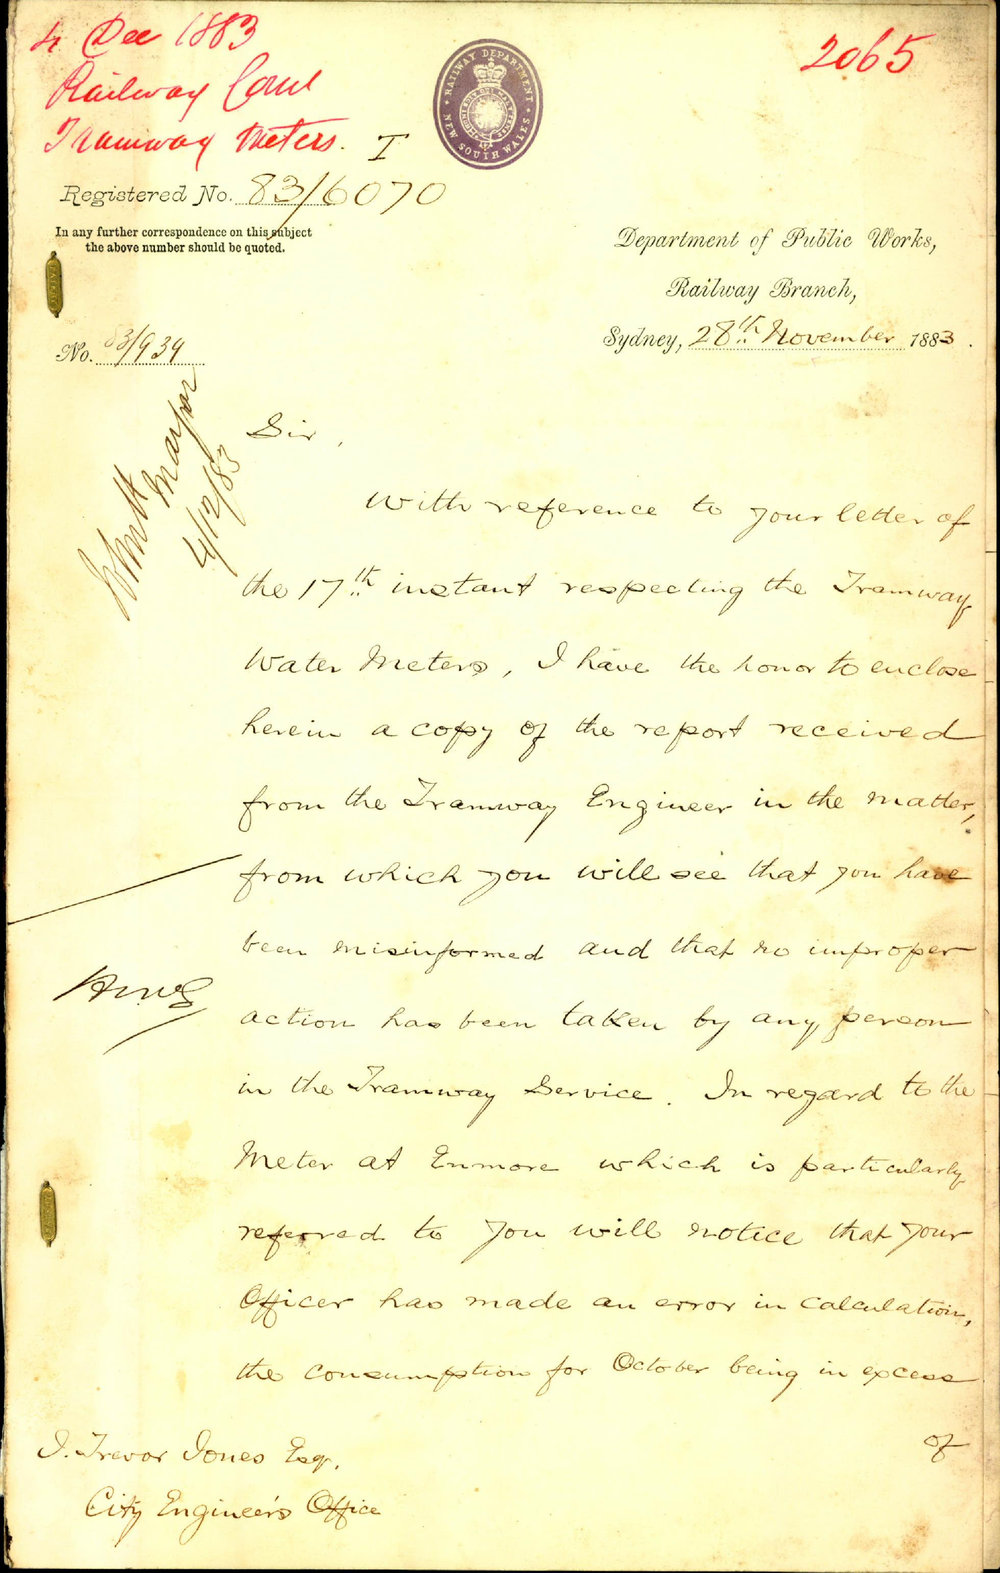 4 Dec 1883
2065
Railway Com
Tramway Meters.
I
RAILWAY DEPARTMENT
NEW SOUTH WALES
Registered No. 83/6070
In any further correspondence on this subject
the above number should be quoted.
Department of Public Works,
Railway Branch,
Sydney, 28th November 1883.
No. 83/939
Mayor
4/12/83
Sir,
With reference to your letter of
the 17th instant respecting the Tramway
Water Meters, I have the honor to enclose
herein a copy of the report received
from the Tramway Engineer in the matter,
from which you will see that you have
been misinformed and that no improper
action has been taken by any person
in the Tramway Service. In regard to the
Meter at Enmore which is particularly
referred to you will notice that your
Officer has made an error in calculation,
the consumption for October being in excess
of
J. Trevor Jones Esq.
City Engineer's Office